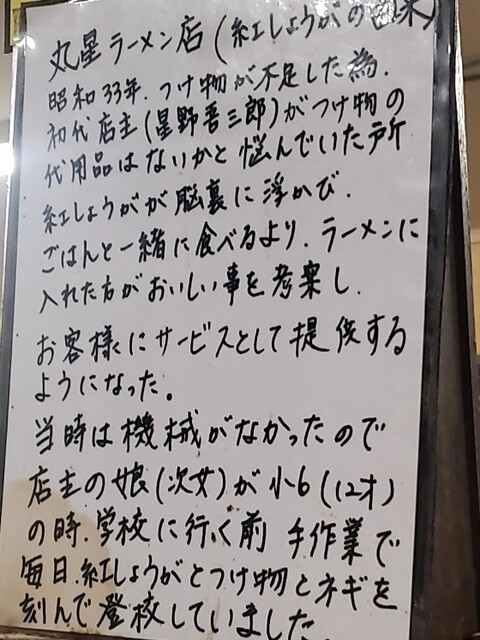 丸星ラーメン店(紅しょうがの由来)
昭和33年.つけ物が不足した為.
初代店主(星野吾三郎)がつけ物の
代用品はないかと悩んでいた所
紅しょうがが脳裏に浮かび.
ごはんと一緒に食べるより.ラーメンに
入れた方がおいしい事を考案し.
お客様にサービスとして提供する
ようになった。
当時は機械がなかったので
店主の娘(次女)が小6(12才)
の時.学校に行く前 手作業で
毎日.紅しょうがとつけ物とネギを
刻んで登校していました。